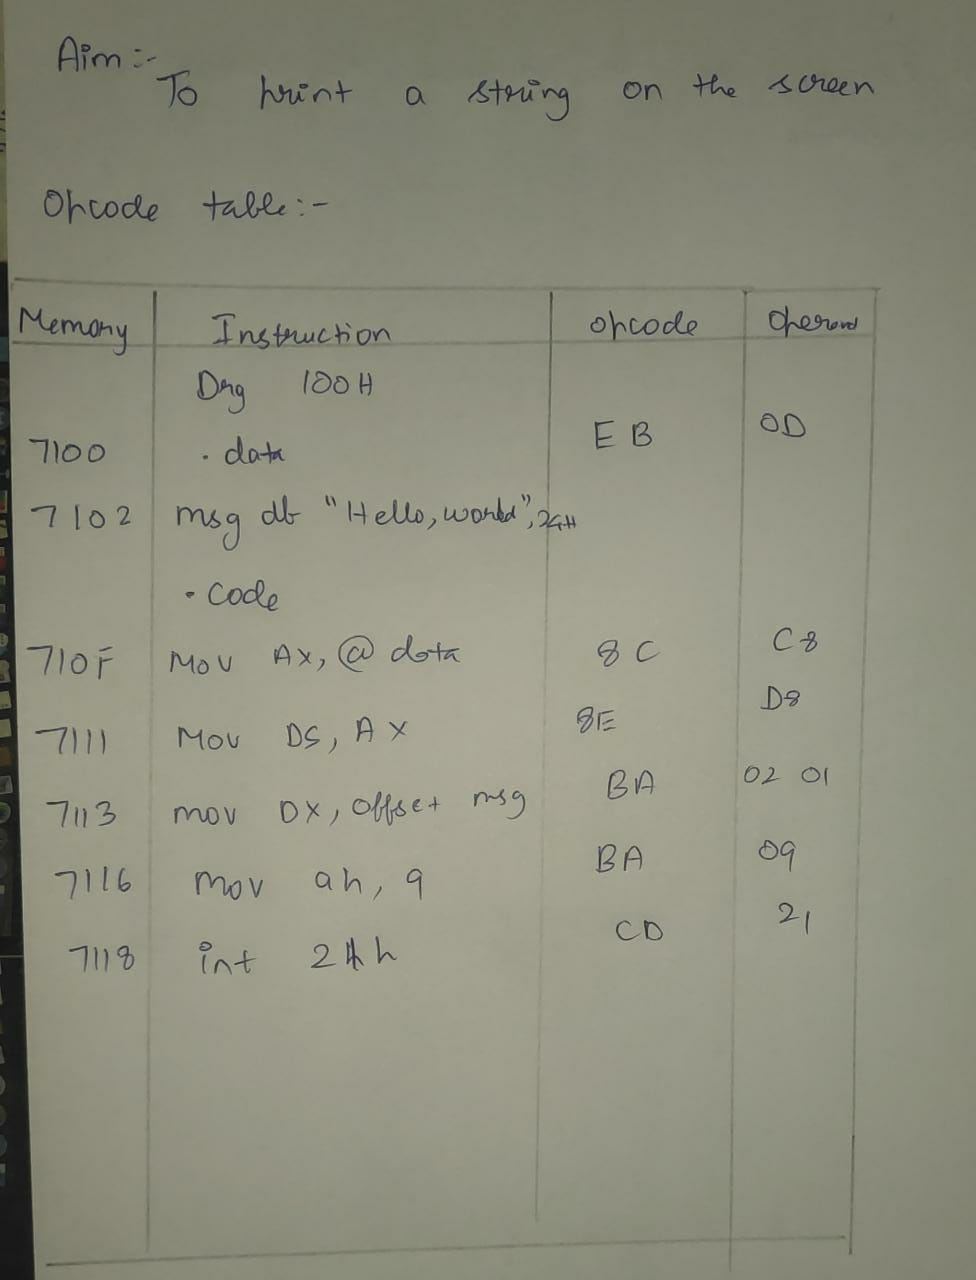 Aim :-
To print a string on the screen
Opcode table :-
Memory Instruction opcode Operand
Org 100H
7100 .data EB 0D
7102 msg db "Hello, world", 24H
.code
710F Mov AX, @ data 8C C8
7111 Mov DS, AX 8E D8
7113 mov DX, offset msg BA 02 01
7116 mov ah, 9 BA 09
7118 int 21h CD 21